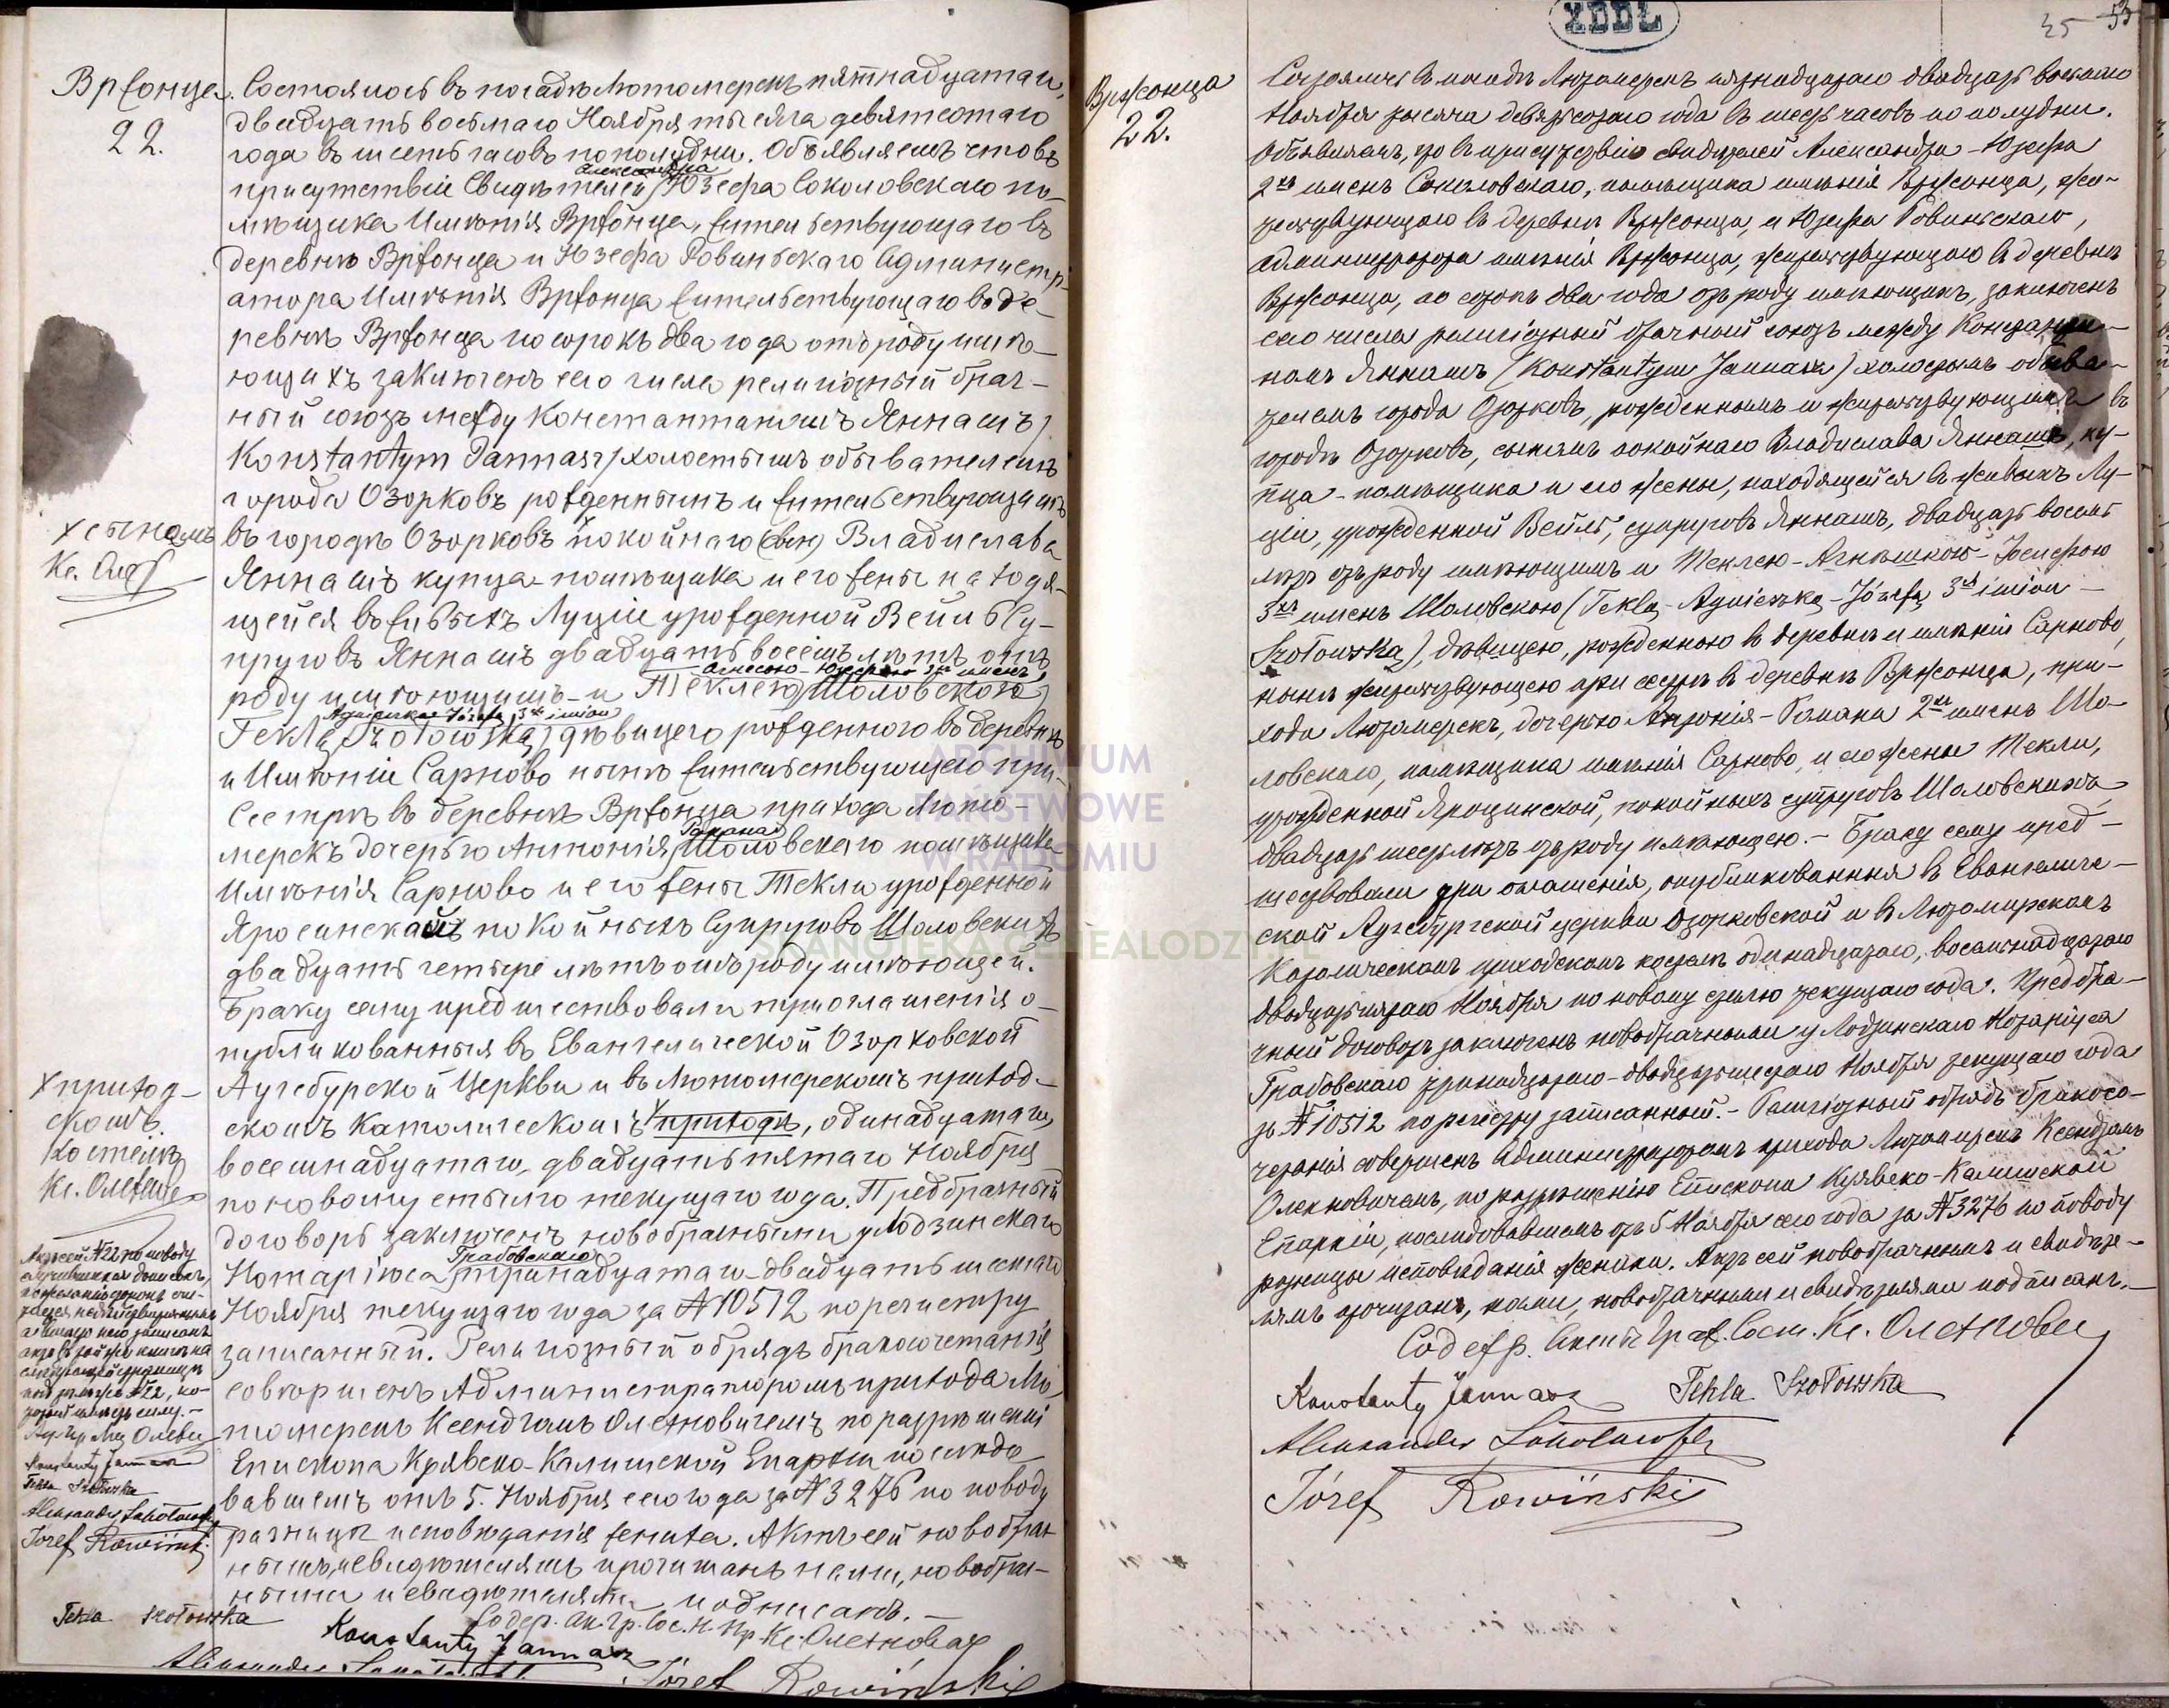 Врconца
22.
Состоялось въ посадѣ Лютомерскъ пятнадцатаго,
двадцать восьмаго Ноября тысяча девятьсотаго
года въ шесть часовъ по полудни. Объявляемъ что въ
присутствіи свидѣтелей Александра Юзефа Соколовскаго по-
мѣщика имѣнія Вржонца, жительствующаго въ
деревнѣ Вржонца и Юзефа Ровинскаго Администр-
атора имѣнія Вржонца жительствующаго въ де-
ревнѣ Вржонца по сорокъ два года отъ роду имѣ-
ющихъ заключенъ сего числа религіозный брач-
ный союзъ между Константиномъ Яннашъ /
Konstantym Jannasz / холостымъ обывателемъ
города Озорковъ рожденнымъ и жительствующимъ
въ городѣ Озорковъ х покойнаго Владислава
Яннашъ купца-помѣщика и его жены находя-
щейся въ живыхъ Луціи урожденной Вейль Су-
пруговъ Яннашъ двадцать восемь лѣтъ отъ
роду имѣющимъ и Теклею Агнесою-Юзефою 3хъ именъ Шоловскою
/Tekla Agnieszka Józefa 3ch imion Szołowska/ дѣвицею рожденною въ деревнѣ
и имѣніи Сарново нынѣ жительствующею при
сестрѣ въ деревнѣ Вржонца прихода Люто-
мерскъ дочерью Антонія Романа Шоловскаго помѣщика
имѣнія Сарново и его жены Текли урожденной
покойныхъ Супруговъ Шоловскихъ
двадцать четыре лѣтъ отъ роду имѣющей.
Браку сему предшествовали три оглашенія о-
публикованныя въ Евангелической Озорковской
Аугсбурской Церкви и въ Лютомерскомъ приход-
скомъ Католическомъ х приходѣ, одинадцатаго,
восемнадцатаго, двадцать пятаго Ноября
по новому стилю текущаго года. Предбрачный
договоръ заключенъ новобрачными у Лодзинскаго
Нотаріуса Грабовскаго тринадцатаго-двадцать шестаго
Ноября текущаго года за № 10512 по регистру
записанный. Религіозный обрядъ бракосочетанія
совершенъ Администраторомъ прихода Лю-
томерскъ Ксендзомъ Олехновичемъ по разрѣшенію
Епископа Куявско-Калишской Епархіи послѣдо-
вавшемъ отъ 5. Ноября сего года за № 3276 по поводу
разницы исповѣданія жениха. Актъ сей новобрач-
нымъ и свидѣтелямъ прочитанъ нами, новобрач-
ными и свидѣтелями подписанъ.—
Кс. Олехновичъ
Tekla Szołowska
Konstanty Jannasz
Aleksander Sokołowski
Józef Rowiński
х сыномъ
Кс. Олех
х приход-
скомъ
костелѣ
Кс. Олехнов
Актъ сей № 22 по поводу
случившихся дописокъ,
по желанію сторонъ счи-
тается недѣйствительнымъ
а вмѣсто него записанъ
актъ въ той же книгѣ на
слѣдующей страницѣ
подъ тѣмъ же № 22, ко-
торый имѣетъ силу.—
Konstanty Jannasz
Tekla Szołowska
Aleksander Sokołowski
Józef Rowiński
ARCHIWUM
PAŃSTWOWE
W RADOMIU
SKANOTEKA.GENEALODZY.PL
35 53
Вржонца
22.
Состоялось въ посадѣ Лютомерскъ пятнадцатаго двадцать восьмаго
Ноября тысяча девятьсотаго года въ шесть часовъ по полудни.
Объявляемъ, что въ присутствіи свидѣтелей Александра-Юзефа
2хъ именъ Соколовскаго, помѣщика имѣнія Вржонца, жи-
тельствующаго въ деревнѣ Вржонца, и Юзефа Ровинскаго,
администратора имѣнія Вржонца, жительствующаго въ деревнѣ
Вржонца, по сорокъ два года отъ роду имѣющихъ, заключенъ
сего числа религіозный брачный союзъ между Константи-
номъ Яннашъ (Konstantym Jannasz) холостымъ обыва-
телемъ города Озорковъ, рожденнымъ и жительствующимъ въ
городѣ Озорковъ, сыномъ покойнаго Владислава Яннашъ, ку-
пца-помѣщика и его жены, находящейся въ живыхъ Лу-
ціи, урожденной Вейль, супруговъ Яннашъ, двадцать восемь
лѣтъ отъ роду имѣющимъ и Теклею-Агнѣшкою-Юзефою
3хъ именъ Шоловскою (Tekla-Agnieszka-Józefa 3ch imion
Szołowska), дѣвицею, рожденною въ деревнѣ и имѣніи Сарново,
нынѣ жительствующею при сестрѣ въ деревнѣ Вржонца, при-
хода Лютомерскъ, дочерью Антонія-Романа 2хъ именъ Шо-
ловскаго, помѣщика имѣнія Сарново, и его жены Текли,
урожденной Яроцинской, покойныхъ супруговъ Шоловскихъ,
двадцать шесть лѣтъ отъ роду имѣющею.— Браку сему пред-
шествовали три оглашенія, опубликованныя въ Евангеличе-
ской Аугсбургской церкви Озорковской и въ Лютомирскомъ
Католическомъ приходскомъ костелѣ одинадцатаго, восемнадцатаго
двадцать пятаго Ноября по новому стилю текущаго года. Предбра-
чный договоръ заключенъ новобрачными у Лодзинскаго Нотаріуса
Грабовскаго тринадцатаго-двадцать шестаго Ноября текущаго года
за № 10512 по регистру записанный.— Религіозный обрядъ бракосо-
четанія совершенъ Администраторомъ прихода Лютомирскъ Ксендзомъ
Олехновичемъ, по разрѣшенію Епископа Куявско-Калишской
Епархіи, послѣдовавшемъ отъ 5 Ноября сего года за № 3276 по поводу
разницы исповѣданія жениха. Актъ сей новобрачнымъ и свидѣте-
лямъ прочитанъ, нами, новобрачными и свидѣтелями подписанъ.—
Кс. Олехнович
Konstanty Jannasz Tekla Szołowska
Aleksander Sokołowski
Józef Rowiński